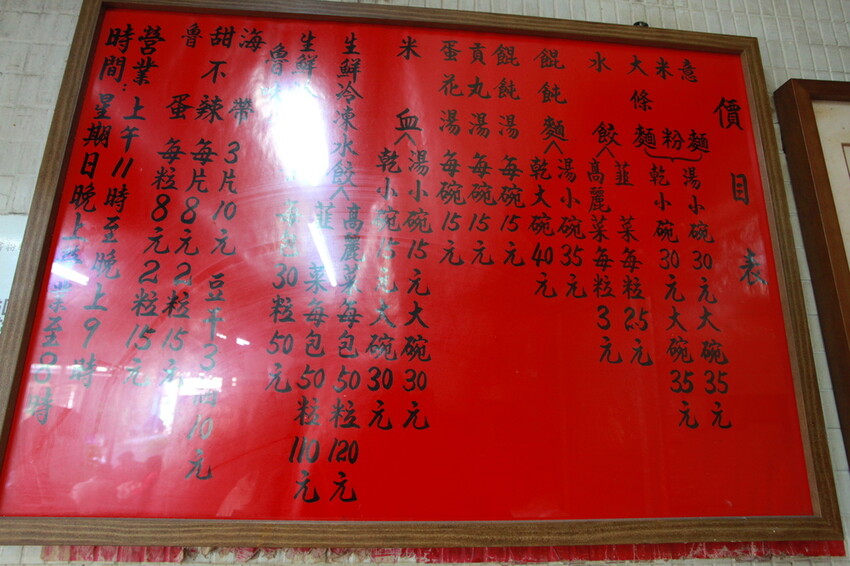 價目表
意麵
米粉
大條麵
湯小碗30元大碗35元
乾小碗30元大碗35元
水餃
韮菜每粒2.5元
高麗菜每粒3元
餛飩麵
湯小碗35元
乾大碗40元
餛飩湯每碗15元
貢丸湯每碗15元
蛋花湯每碗15元
米血
湯小碗15元大碗30元
乾小碗15元大碗30元
生鮮冷凍水餃
高麗菜每包50粒120元
韮菜每包50粒110元
生鮮 每 30粒50元
魯味
海帶3片10元 豆干3 10元
甜不辣每片8元2粒15元
魯蛋每粒8元2粒15元
營業時間:
上午11時至晚上9時
星期日晚上營業至8時